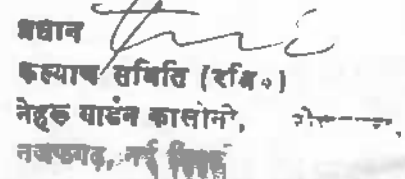 प्रधान
कल्याण समिति (रजि०)
नेहरू गार्डन कालोनी,
नजफगढ़, नई दिल्ली